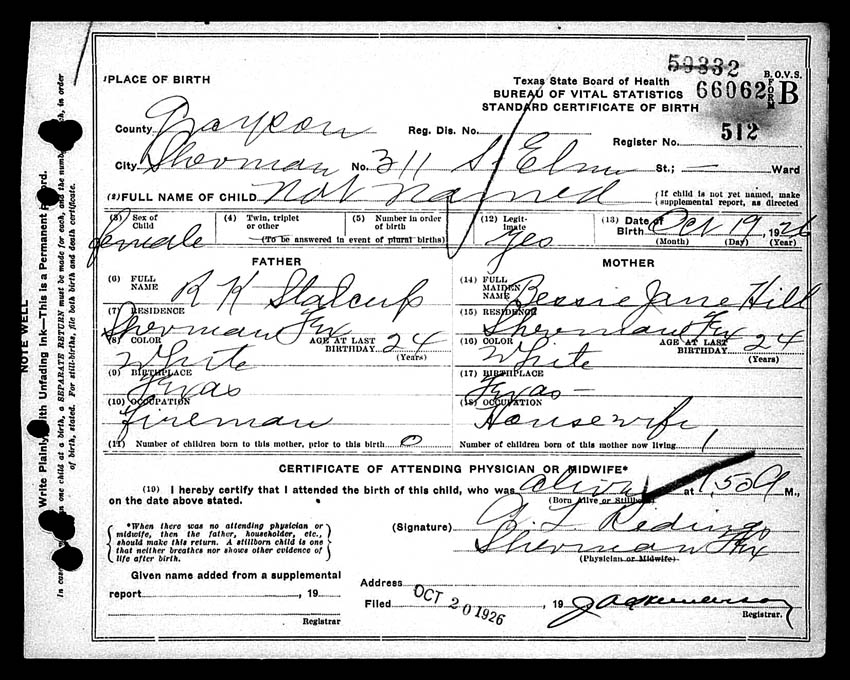 59332
PLACE OF BIRTH
Texas State Board of Health
BUREAU OF VITAL STATISTICS
STANDARD CERTIFICATE OF BIRTH
66062
B.O.V.S.
FORM B
County Grayson Reg. Dis. No.
Register No. 512
City Sherman No. 311 S. Elm St.; — Ward
(2) FULL NAME OF CHILD Not Named
(If child is not yet named, make supplemental report, as directed
(3) Sex of Child female
(4) Twin, triplet or other
(5) Number in order of birth
(To be answered in event of plural births)
(12) Legitimate yes
(13) Date of Birth Oct 19, 1926
(Month) (Day) (Year)
FATHER
(6) FULL NAME R K Stalcup
(7) RESIDENCE Sherman Tex
(8) COLOR White
AGE AT LAST BIRTHDAY 24
(Years)
(9) BIRTHPLACE Texas
(10) OCCUPATION Fireman
(11) Number of children born to this mother, prior to this birth 0
MOTHER
(14) FULL MAIDEN NAME Bessie Jane Hill
(15) RESIDENCE Sherman Tex
(16) COLOR White
AGE AT LAST BIRTHDAY 24
(Years)
(17) BIRTHPLACE Texas —
(18) OCCUPATION Housewife
Number of children born of this mother now living 1
CERTIFICATE OF ATTENDING PHYSICIAN OR MIDWIFE*
(19) I hereby certify that I attended the birth of this child, who was alive at 1,50 A M.,
(Born Alive or Stillborn)
on the date above stated.
*When there was no attending physician or
midwife, then the father, householder, etc.,
should make this return. A stillborn child is one
that neither breathes nor shows other evidence of
life after birth.
(Signature)
Sherman Tex
(Physician or Midwife)
Given name added from a supplemental
report , 19
Registrar
Address
Filed OCT 20 1926 , 19
Registrar.
NOTE WELL
Write Plainly With Unfading Ink—This is a Permanent Record.
one child at a birth, a SEPARATE RETURN must be made for each, and the number of each, in order
of birth, stated. For still-births, file both birth and death certificate.